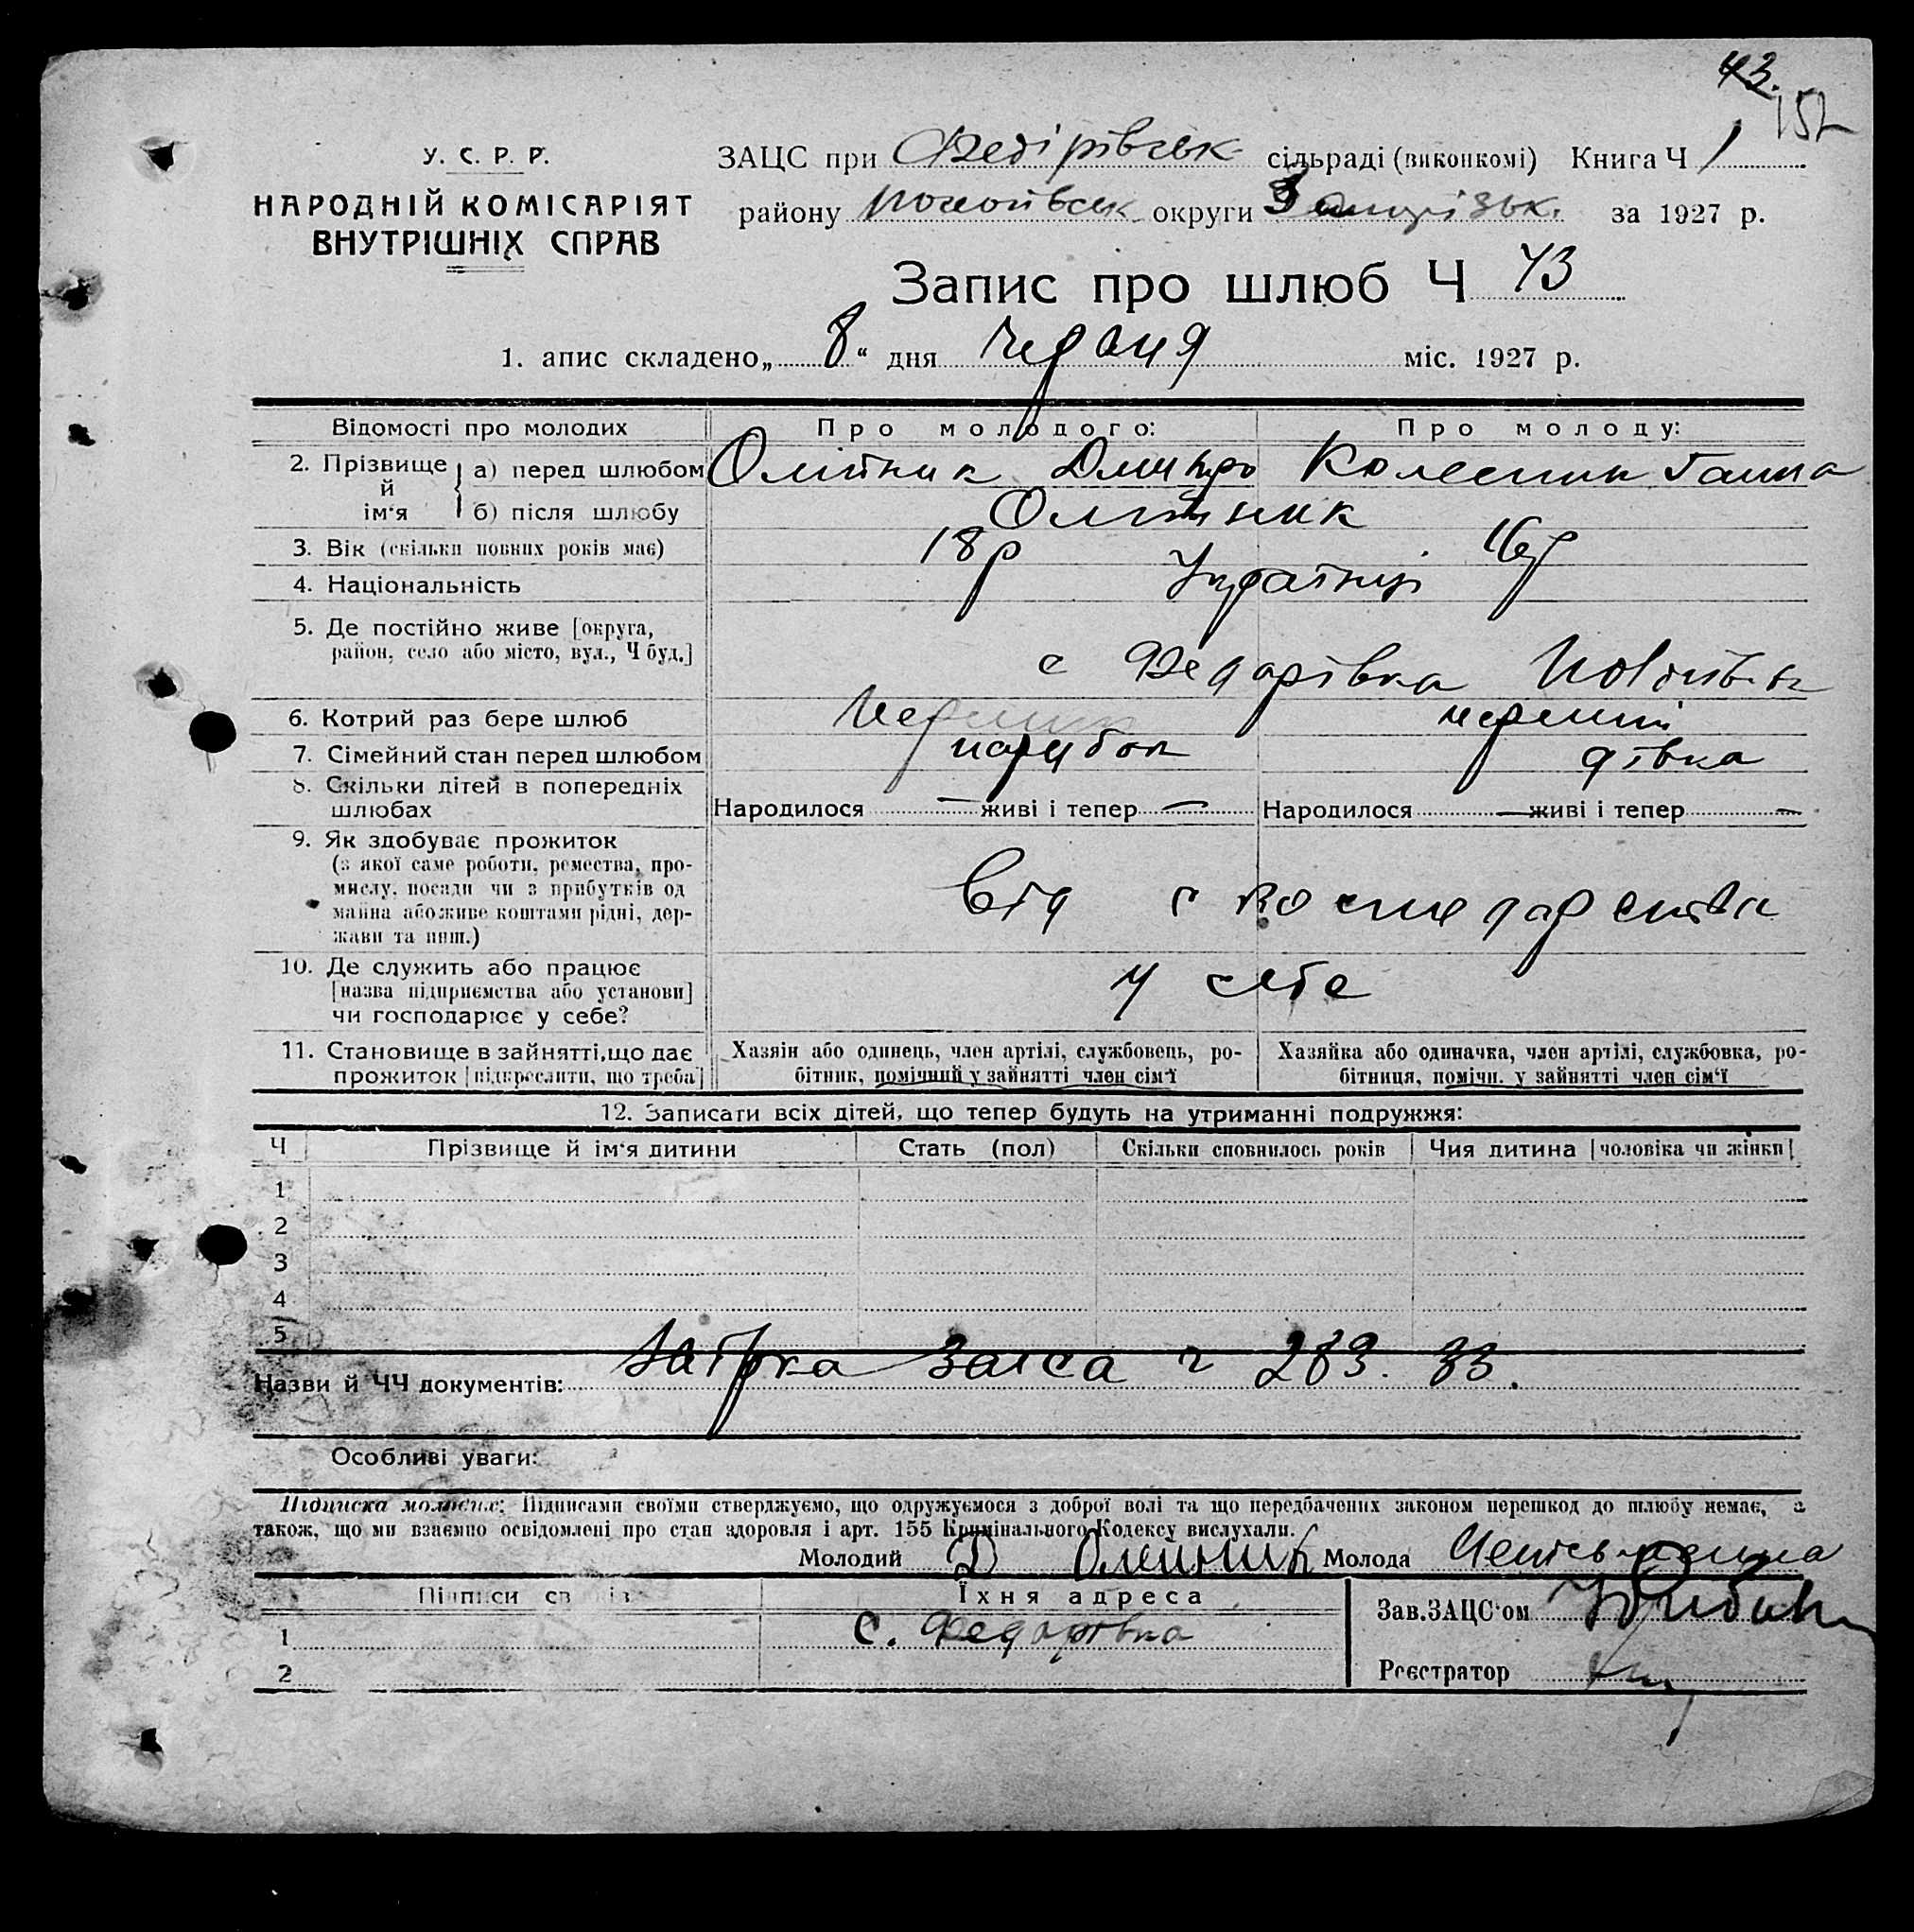 43.
152
У. С. Р. Р.
НАРОДНІЙ КОМІСАРІЯТ
ВНУТРІШНІХ СПРАВ
ЗАЦС при Федірівськ сільраді (виконкомі) Книга Ч 1
району округи Запорізьк. за 1927 р.
Запис про шлюб Ч 43
1. апис складено „ 8 “ дня червня міс. 1927 р.
Відомості про молодих Про молодого: Про молоду:
2. Прізвище й ім‘я а) перед шлюбом Олійник Дмитро Колесник Ганна
б) після шлюбу Олійник
3. Вік (скільки повних років має) 18р 16р
4. Національність Українці
5. Де постійно живе [округа,
район, село або місто, вул., Ч буд.] с Федорівка
6. Котрий раз бере шлюб Перший перший
7. Сімейний стан перед шлюбом парубок дівка
8. Скільки дітей в попередніх
шлюбах Народилося — живі і тепер — Народилося — живі і тепер —
9. Як здобуває прожиток
(з якої саме роботи, ремества, про-
мислу, посади чи з прибутків од
майна або живе коштами рідні, дер-
жави та инш.) Від
10. Де служить або працює
[назва підприємства або установи]
чи господарює у себе? у себе
11. Становище в зайнятті, що дає
прожиток [підкреслити, що треба]
Хазяін або одинець, член артілі, службовець, ро-
бітник, помічний у зайнятті член сім‘ї
Хазяйка або одиначка, член артілі, службовка, ро-
бітниця, помічн. у зайнятті член сім‘ї
12. Записати всіх дітей, що тепер будуть на утриманні подружжя:
Ч Прізвище й ім‘я дитини Стать (пол) Скільки сповнилось років Чия дитина [чоловіка чи жінки]
1
2
3
4
5
Назви й ЧЧ документів: Загса 283. 33.
Особливі уваги:
Підписка молодих: Підписами своїми стверджуємо, що одружуємося з доброї волі та що передбачених законом перешкод до шлюбу немає, а
також, що ми взаємно освідомлені про стан здоровля і арт. 155 Кримінального Кодексу вислухали.
Молодий Д Олейник Молода
Підписи свідків Їхня адреса
1 с. Федорівка
2
Зав.ЗАЦС‘ом
Реєстратор